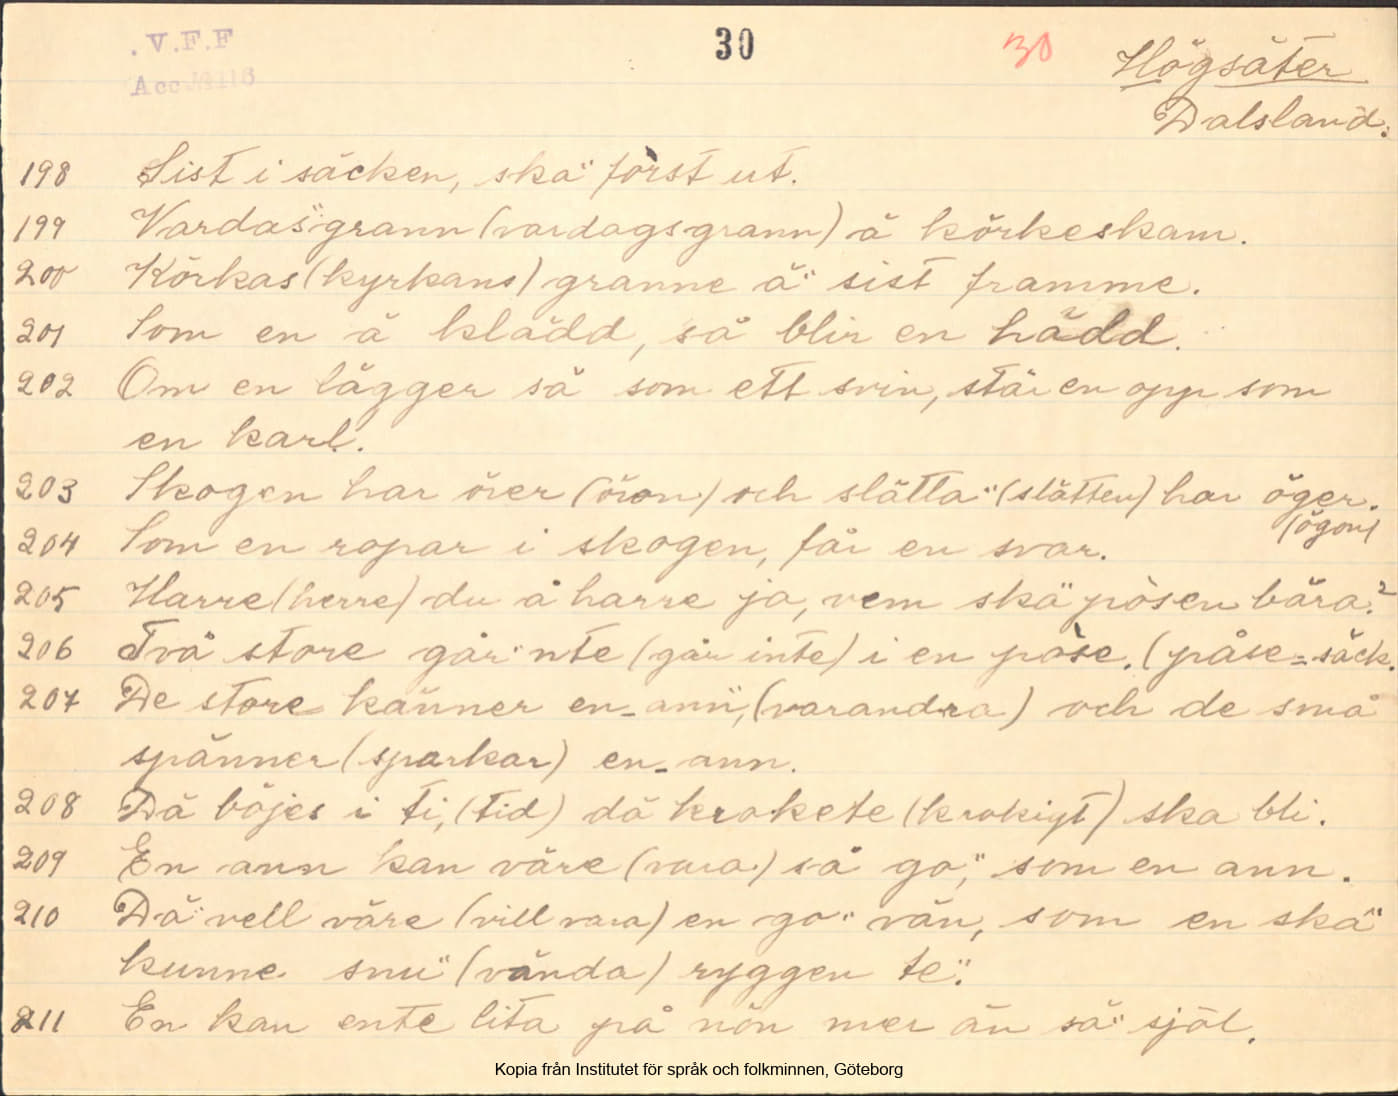 V.F.F
30
30
Högsäter
Acc
Dalsland.
198 Sist i säcken, ska" först ut.
199 Vardas"grann (vardagsgrann) ä körkeskam.
200 Körkas (kyrkans) granne ä" sist framme.
201 Som en ä klädd, så blir en hädd.
202 Om en lägger sä som ett svin, står en opp som
en karl.
203 Skogen har örer (öron) och slätta" (slätten) har öger.
(ögon)
204 Som en ropar i skogen, får en svar.
205 Harre (herre) du å harre ja, vem skä" påsen bära?
206 Två store går"nte (går inte) i en påse. (påse = säck.
207 De store känner en-ann", (varandra) och de små
spänner (sparkar) en-ann.
208 Dä böjes i ti, (tid) dä krokete (krokigt) ska bli.
209 En ann kan väre (vara) så go", som en ann.
210 Dä" vell väre (vill vara) en go" vän, som en skä"
kunne snu" (vända) ryggen te".
211 En kan ente lita på nön mer än sä" själ.
Kopia från Institutet för språk och folkminnen, Göteborg